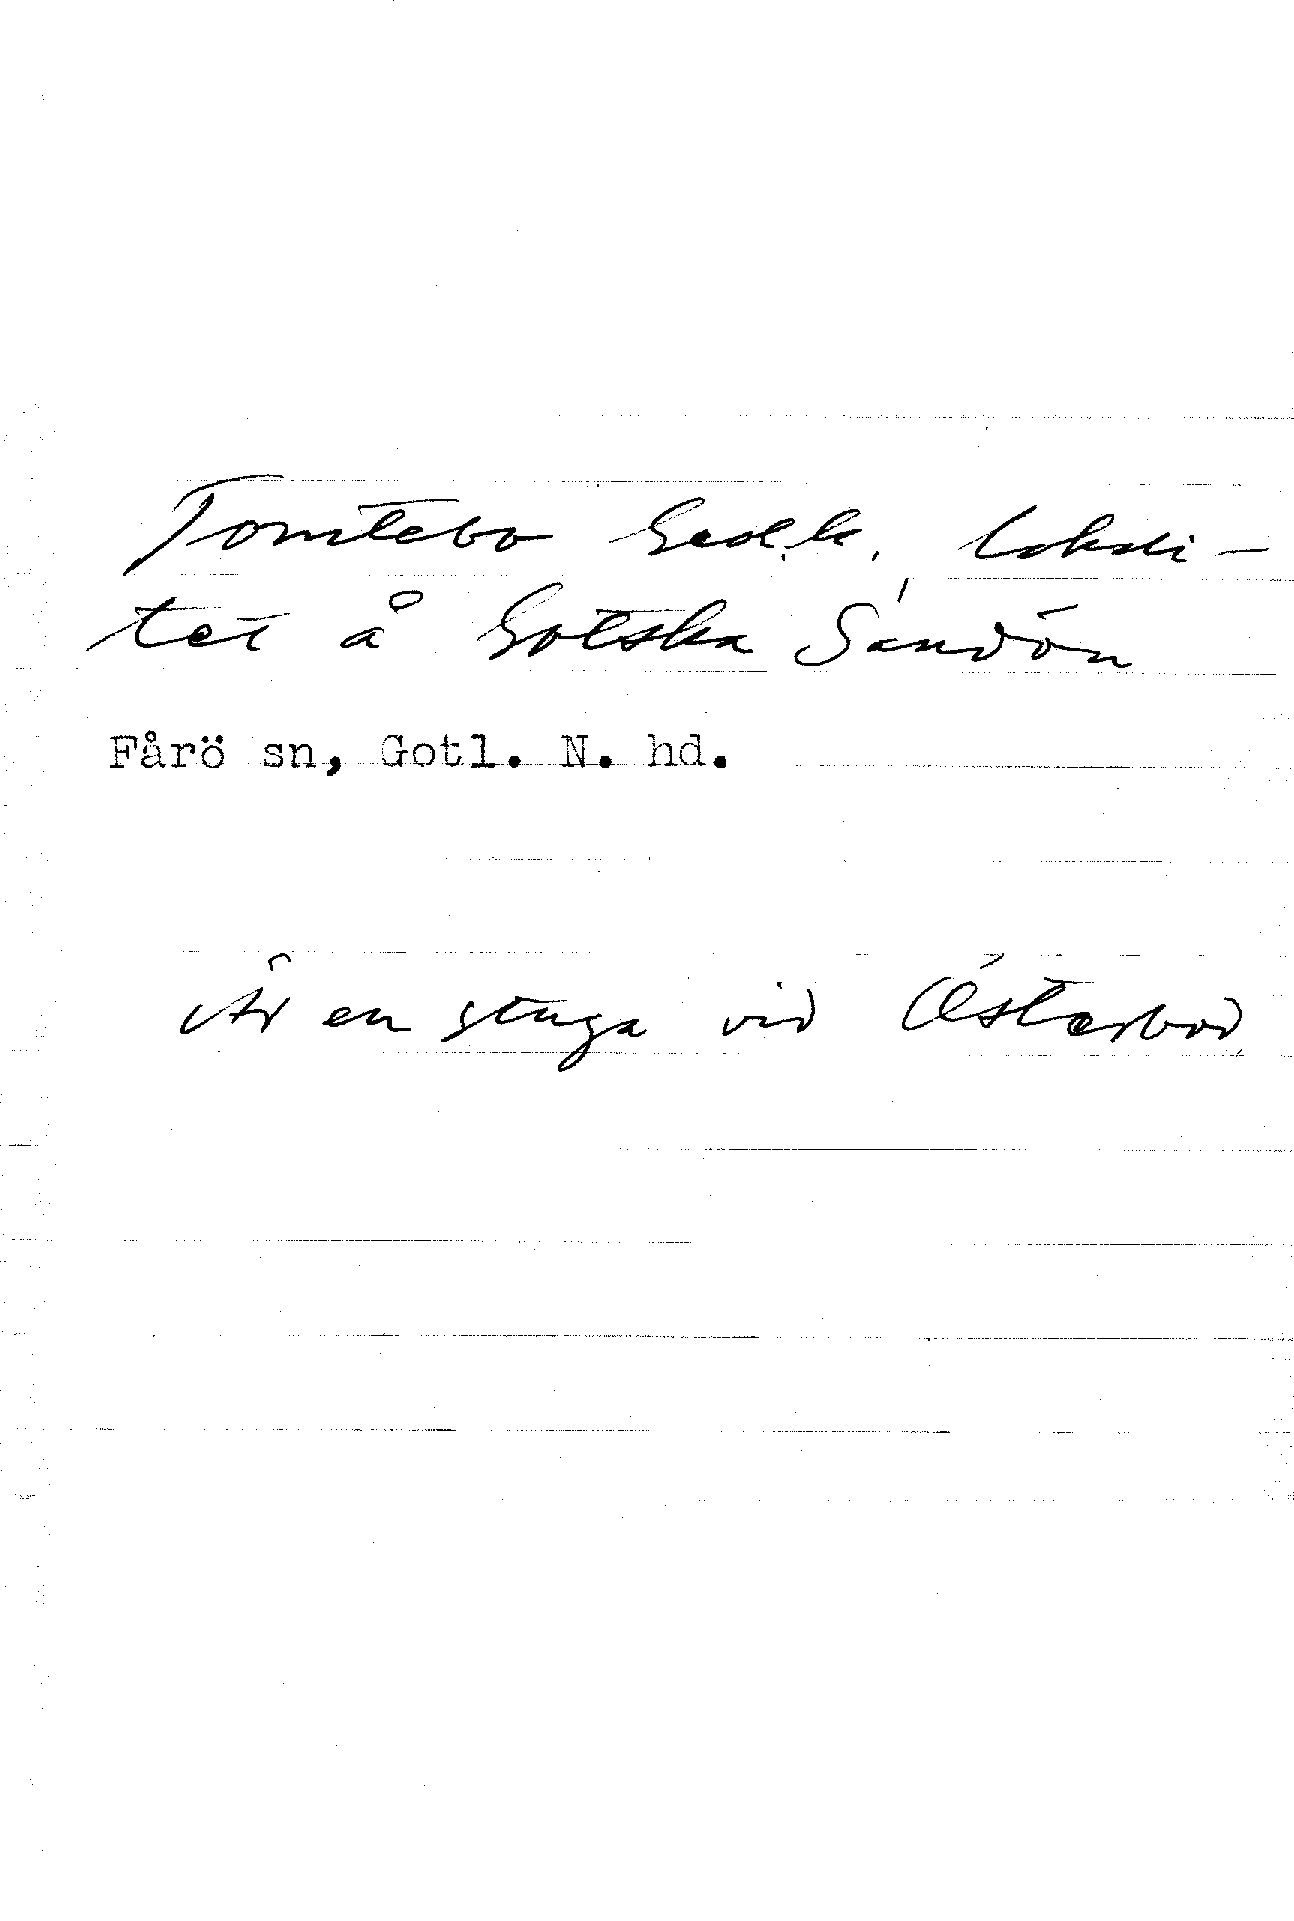 Tomtebo lokali-
tet å Gotska Sandön
Fårö sn, Gotl. N. hd.
Är en stuga vid Österbod